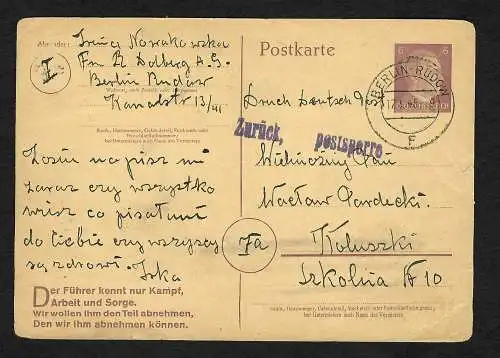 Absender: Irena Nowakowska
Fa R. Dolberg A.G.
Berlin Rudow
Wohnort, auch Zustell- oder Leitpostamt
Kanalstr 13/
I
Straße, Hausnummer, Gebäudeteil, Stockwerk oder
Postschließfachnummer;
bei Untermietern auch Name des Vermieters
Zosiu napisz mi
zaraz czy wszystko
wiesz co pisałam
do Ciebie czy wszyscy
są zdrowi. Iska
Der Führer kennt nur Kampf,
Arbeit und Sorge.
Wir wollen ihm den Teil abnehmen,
Den wir ihm abnehmen können.
Postkarte
6 6
BERLIN-RUDOW
F
Durch Deutsch Post
Zurück, postsperre
Wielmożny Pan
Wacław Pardecki
Koluszki
Szkolna N 10
Straße, Hausnummer, Gebäudeteil, Stockwerk oder Postschließfachnummer;
bei Untermietern auch Name des Vermieters